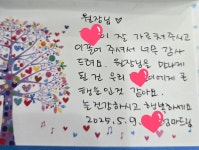 원장님 ♡
이 잘 가르쳐주시고
이끌어 주셔서 너무 감사
드려요. 원장님을 만나게
된 건 우리 이에게 큰
행운인것 같아요.
늘 건강하시고 행복하세요
2025.5.9 맘드림